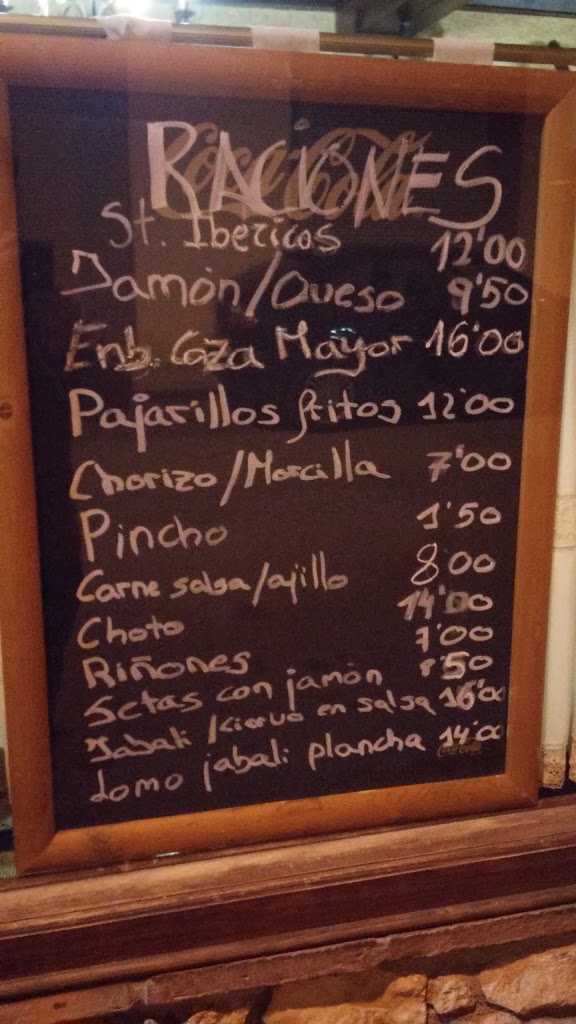 Coca-Cola
RACIONES
St. Ibericos 12'00
Jamón/Queso 9'50
Enb. Caza Mayor 16'00
Pajarillos fritos 12'00
Chorizo/Morcilla 7'00
Pincho 1'50
Carne salsa/ajillo 8'00
Choto 14'00
Riñones 7'00
Setas con jamón 8'50
Jabali/Ciervo en salsa 16'00
Lomo jabali plancha 14'00
Coca-Cola